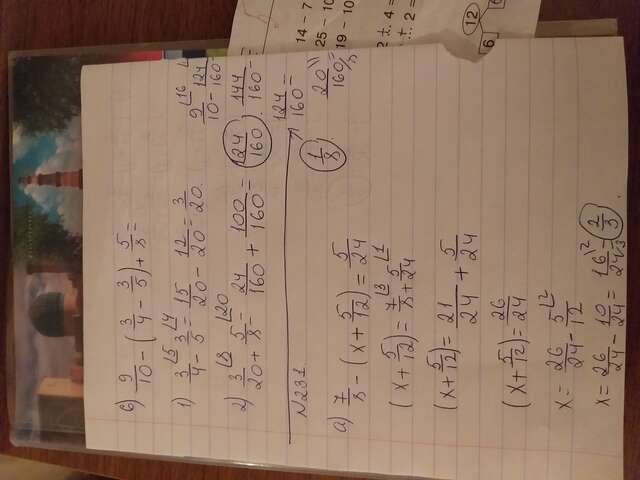 б) 9/10 - (3/4 - 3/5) + 5/8 =
1) 3/4⌊5 - 3/5⌊4 = 15/20 - 12/20 = 3/20.
2) 3/20⌊8 + 5/8⌊20 = 24/160 + 100/160 = 124/160.
9/10⌊16 - 124/160 =
144/160 -
124/160 =
1/8
20/160/8 =
N231
а) 7/8 - (x + 5/12) = 5/24
(x + 5/12) = 7/8⌊3 + 5/24⌊1
(x + 5/12) = 21/24 + 5/24
(x + 5/12) = 26/24
x = 26/24 - 5/12⌊2
x = 26/24 - 10/24 = 16\2/24 3 = 2/3.
14 - 7
25 - 10
19 - 10
4 =
2 =
12
6